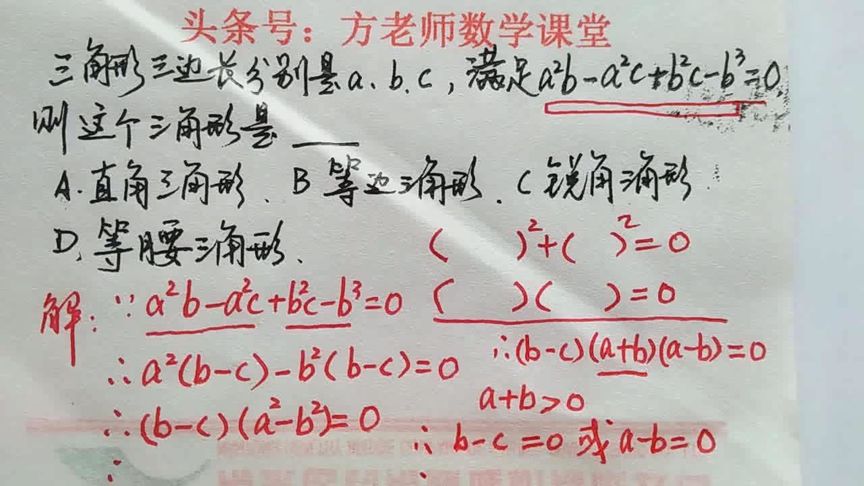 头条号：方老师数学课堂
三角形三边长分别是a、b、c，满足a²b-a²c+b²c-b³=0，
则这个三角形是____
A.直角三角形、B 等边三角形、C 锐角三角形
D、等腰三角形、
( )²+( )²=0
( )( )=0
解：∵a²b-a²c+b²c-b³=0
∴a²(b-c)-b²(b-c)=0
∴(b-c)(a²-b²)=0
∴
∴(b-c)(a+b)(a-b)=0
a+b>0
∴b-c=0或a-b=0
∴